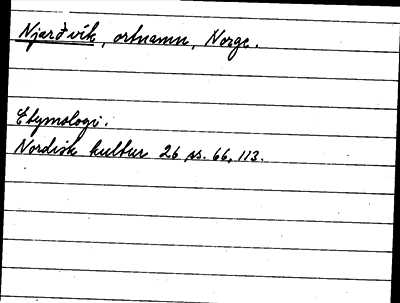 Njarðvík, ortnamn, Norge.
Etymologi.
Nordisk kultur 26 ss. 66, 113.